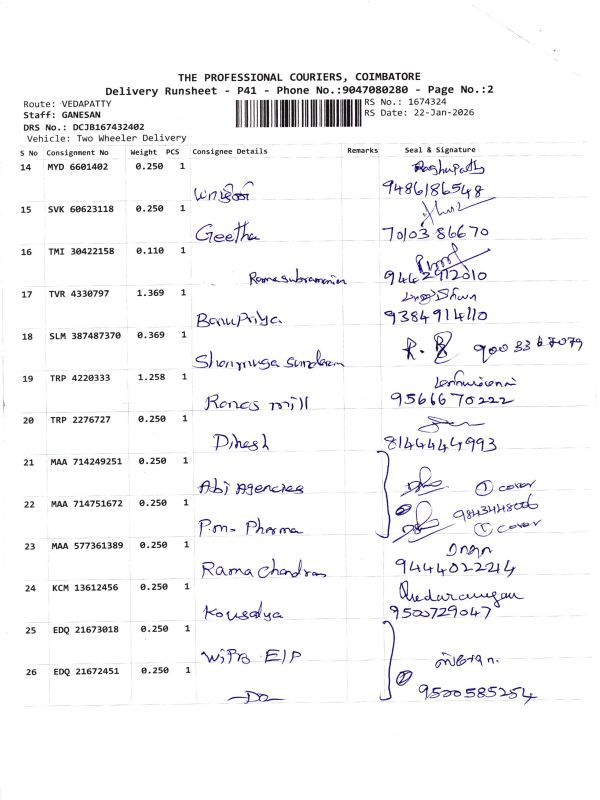 THE PROFESSIONAL COURIERS, COIMBATORE
Delivery Runsheet - P41 - Phone No.:9047080280 - Page No.:2
Route: VEDAPATTY
RS No.: 1674324
Staff: GANESAN
RS Date: 22-Jan-2026
DRS No.: DCJB167432402
Vehicle: Two Wheeler Delivery
S No Consignment No Weight PCS Consignee Details Remarks Seal & Signature
14 MYD 6601402 0.250 1 Raghupathi
9486186548
15 SVK 60623118 0.250 1
Geetha 7010386670
16 TMI 30422158 0.110 1
Ramasubramanian 9442912010
17 TVR 4330797 1.369 1
BanuPriya 9384914110
18 SLM 387487370 0.369 1
Shanmuga sundaram 9003367079
19 TRP 4220333 1.258 1
Ranas mill 9566670222
20 TRP 2276727 0.250 1
Dinesh 8144444993
21 MAA 714249251 0.250 1
Abi Agencies ① cover
22 MAA 714751672 0.250 1 9843448006
Pon- Pharma ① cover
23 MAA 577361389 0.250 1
Rama Chandran 9444022414
24 KCM 13612456 0.250 1
Kousalya 9500729047
25 EDQ 21673018 0.250 1
Wipro E/P
26 EDQ 21672451 0.250 1 ②
—Do— 9500585254